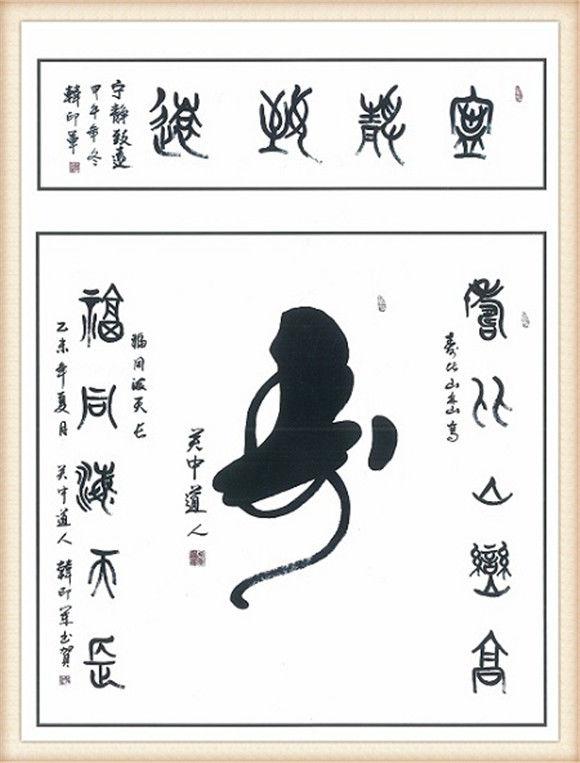 寧靜致遠
宁静致遠
甲午年冬
韓印軍
壽比山巒高
寿比山峦高
寿
关中道人
福同海天长
福同海天長
乙未年夏月 关中道人 韓印军书贺